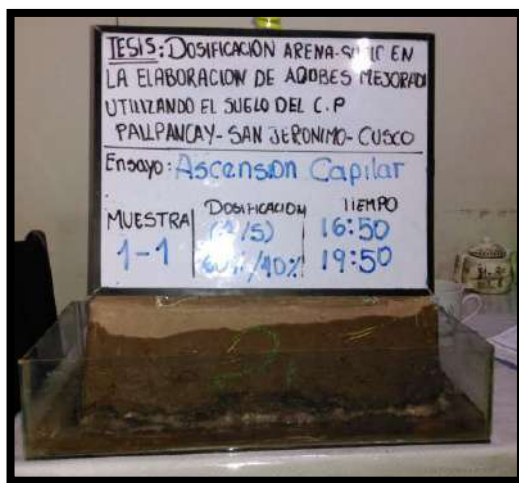 TESIS: DOSIFICACIÓN ARENA- EN
LA ELABORACION DE ADOBES MEJORADO
UTILIZANDO EL SUELO DEL C.P
PAILPANCAY- SAN JERONIMO- CUSCO
Ensayo: Ascension Capilar
MUESTRA DOSIFICACION TIEMPO
1-1 (A/S) 16:50
60%/40% 19:50